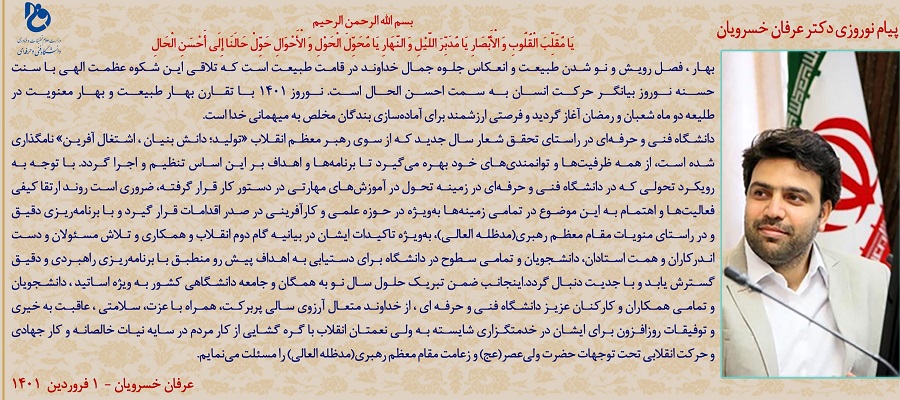 بسم الله الرحمن الرحیم
پیام نوروزی دکتر عرفان خسرویان
یَا مُقَلِّبَ الْقُلُوبِ وَ الْأَبْصَارِ یَا مُدَبِّرَ اللَّیْلِ وَ النَّهَارِ یَا مُحَوِّلَ الْحَوْلِ وَ الْأَحْوَالِ حَوِّلْ حَالَنَا إِلَى أَحْسَنِ الْحَالِ
دانشگاه فنی و حرفه‌ای
بهار ، فصل رویش و نو شدن طبیعت و انعکاس جلوه جمال خداوند در قامت طبیعت است که تلاقی این شکوه عظمت الهی با سنت
حسنه نوروز بیانگر حرکت انسان به سمت احسن الحال است. نوروز ۱۴۰۱ با تقارن بهار طبیعت و بهار معنویت در
طلیعه دو ماه شعبان و رمضان آغاز گردید و فرصتی ارزشمند برای آماده‌سازی بندگان مخلص به میهمانی خدا است.
دانشگاه فنی و حرفه‌ای در راستای تحقق شعار سال جدید که از سوی رهبر معظم انقلاب «تولید؛ دانش بنیان ، اشتغال آفرین» نامگذاری
شده است، از همه ظرفیت‌ها و توانمندی‌های خود بهره می‌گیرد تا برنامه‌ها و اهداف بر این اساس تنظیم و اجرا گردد. با توجه به
رویکرد تحولی که در دانشگاه فنی و حرفه‌ای در زمینه تحول در آموزش‌های مهارتی در دستور کار قرار گرفته، ضروری است روند ارتقا کیفی
فعالیت‌ها و اهتمام به این موضوع در تمامی زمینه‌ها به‌ویژه در حوزه علمی و کارآفرینی در صدر اقدامات قرار گیرد و با برنامه‌ریزی دقیق
و در راستای منویات مقام معظم رهبری(مدظله العالی)، به‌ویژه تاکیدات ایشان در بیانیه گام دوم انقلاب و همکاری و تلاش مسئولان و دست
اندرکاران و همت استادان، دانشجویان و تمامی سطوح در دانشگاه برای دستیابی به اهداف پیش رو منطبق با برنامه‌ریزی راهبردی و دقیق
گسترش یابد و با جدیت دنبال گردد.اینجانب ضمن تبریک حلول سال نو به همگان و جامعه دانشگاهی کشور به ویژه اساتید ، دانشجویان
و تمامی همکاران و کارکنان عزیز دانشگاه فنی و حرفه ای ، از خداوند متعال آرزوی سالی پربرکت، همراه با عزت، سلامتی ، عاقبت به خیری
و توفیقات روزافزون برای ایشان در خدمتگزاری شایسته به ولی نعمتان انقلاب با گره گشایی از کار مردم در سایه نیات خالصانه و کار جهادی
و حرکت انقلابی تحت توجهات حضرت ولی‌عصر(عج) و زعامت مقام معظم رهبری(مدظله العالی) را مسئلت می‌نمایم.
عرفان خسرویان - ۱ فروردین ۱۴۰۱